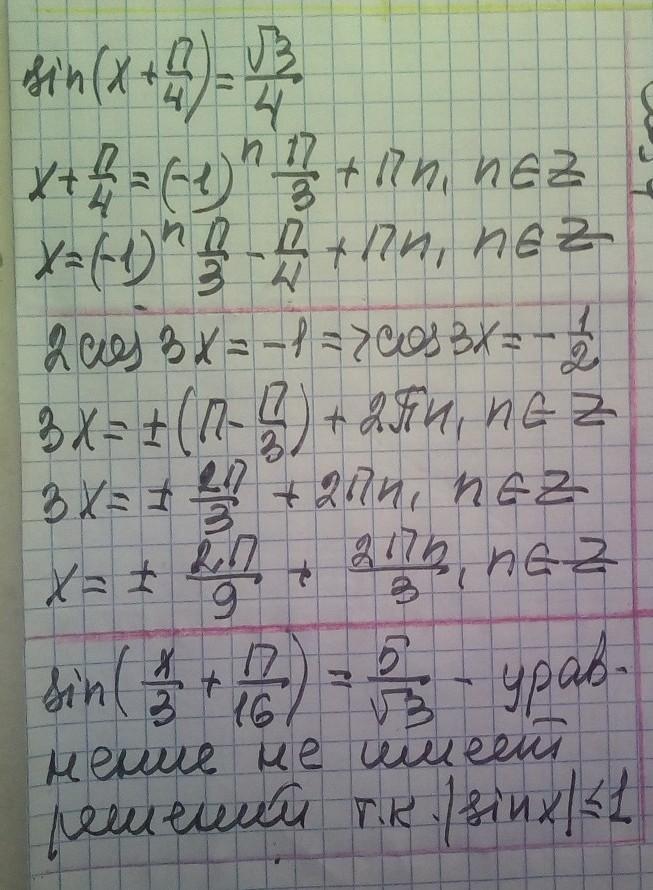 sin(x + π/4) = √3/4
x + π/4 = (-1)ⁿ π/3 + πn, n ∈ Z
x = (-1)ⁿ π/3 - π/4 + πn, n ∈ Z
2cos 3x = -1 => cos 3x = - 1/2
3x = ± (π - π/3) + 2πn, n ∈ Z
3x = ± 2π/3 + 2πn, n ∈ Z
x = ± 2π/9 + 2πn/3, n ∈ Z
sin(x/3 + π/16) = 5/√3 - урав-
нение не имеет
решений т.к. |sinx| ≤ 1